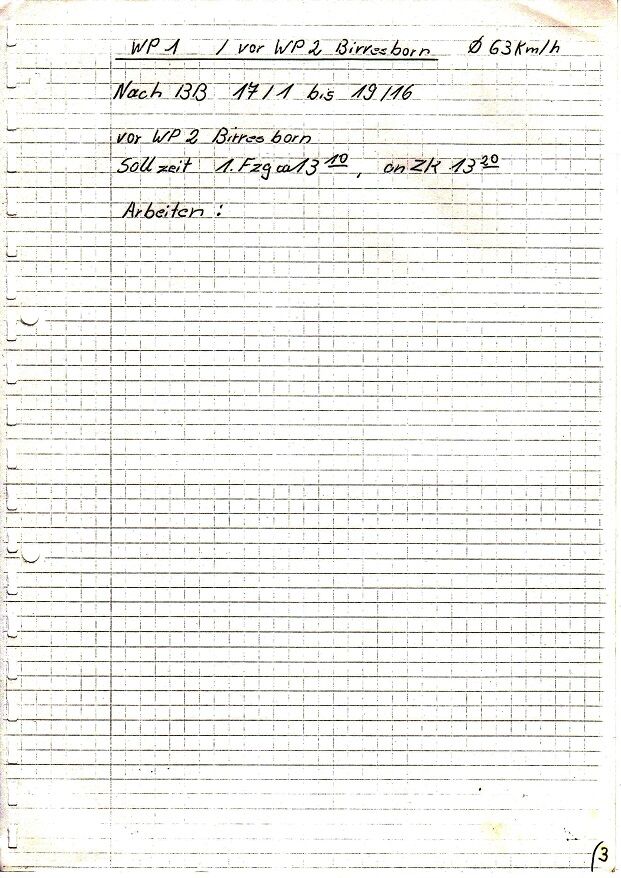 WP 1 / vor WP 2 Birresborn Ø 63 Km/h
Nach BB 17/1 bis 19/16
vor WP 2 Birresborn
Sollzeit 1. Fzg ca 13 10 , an ZK 13 20
Arbeiten :
3